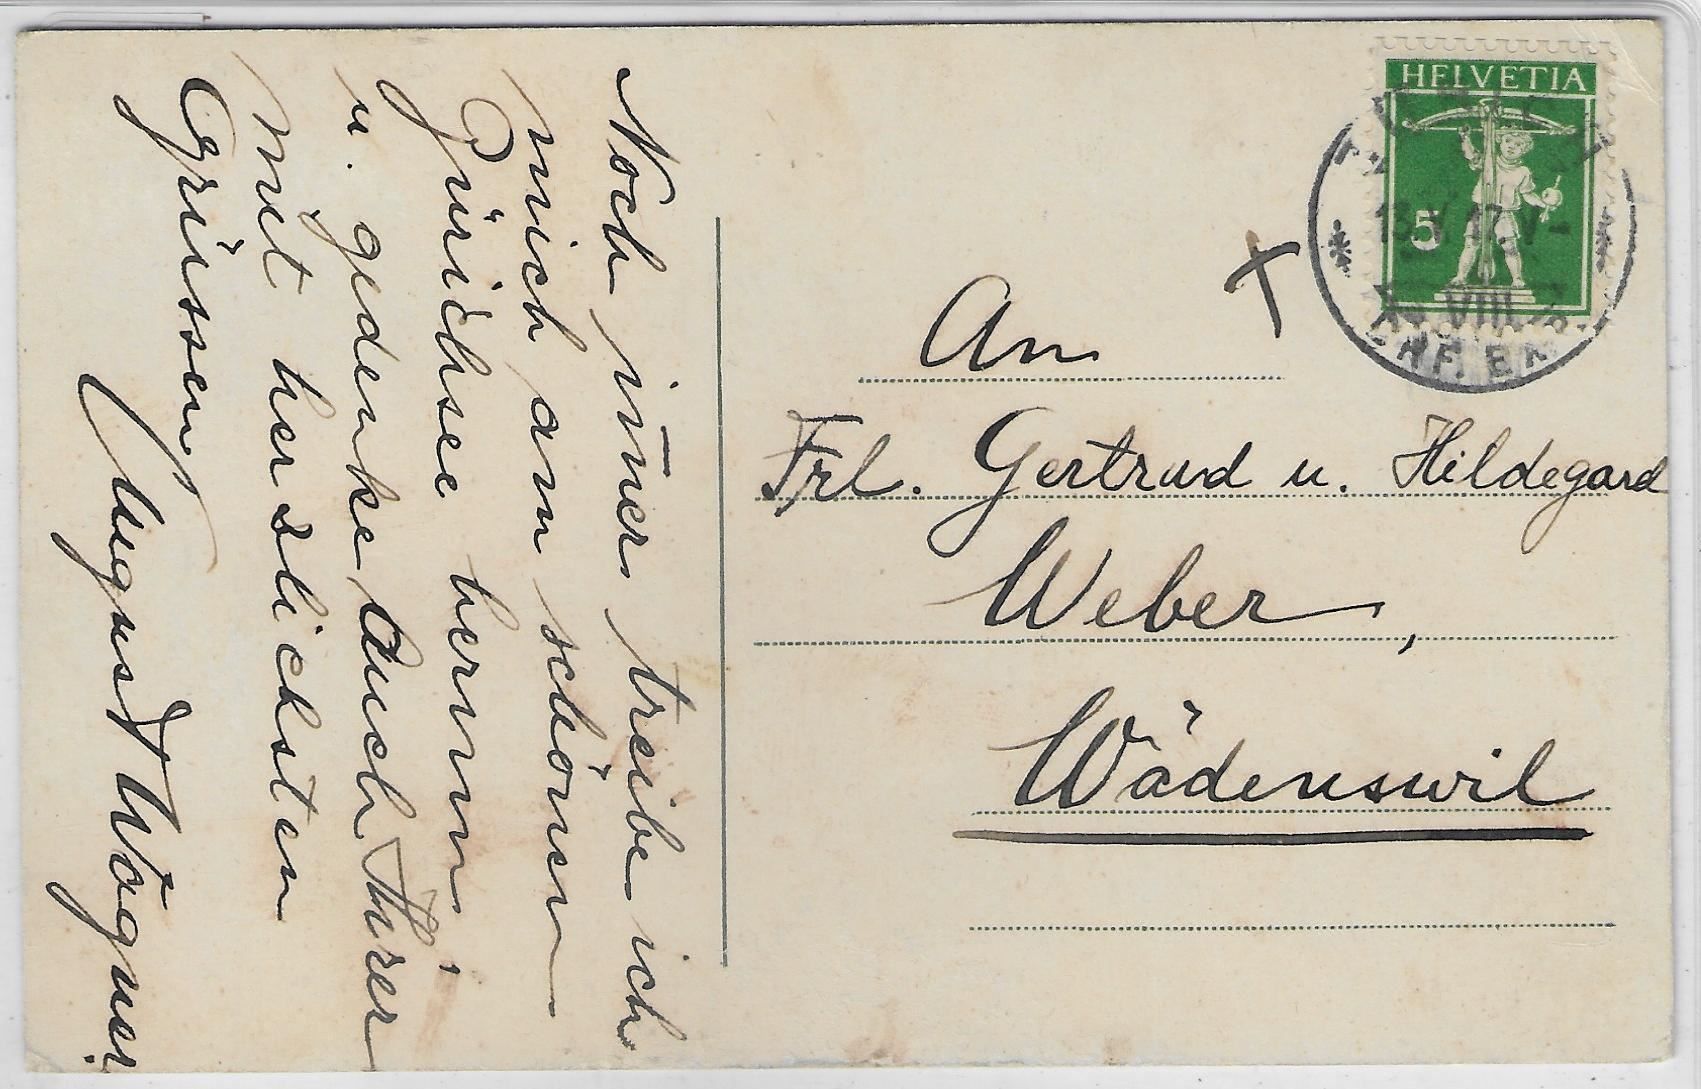 Noch im̅er treibe ich
mich am schönen
Zürichsee herum,
u. gedenke auch Ihrer
mit herzlichsten
Grüssen,
August Wagner.
HELVETIA
5
13. V. 17. V-
VIII.
BRF. EX
An
Frl. Gertrud u. Hildegard
Weber,
Wädenswil